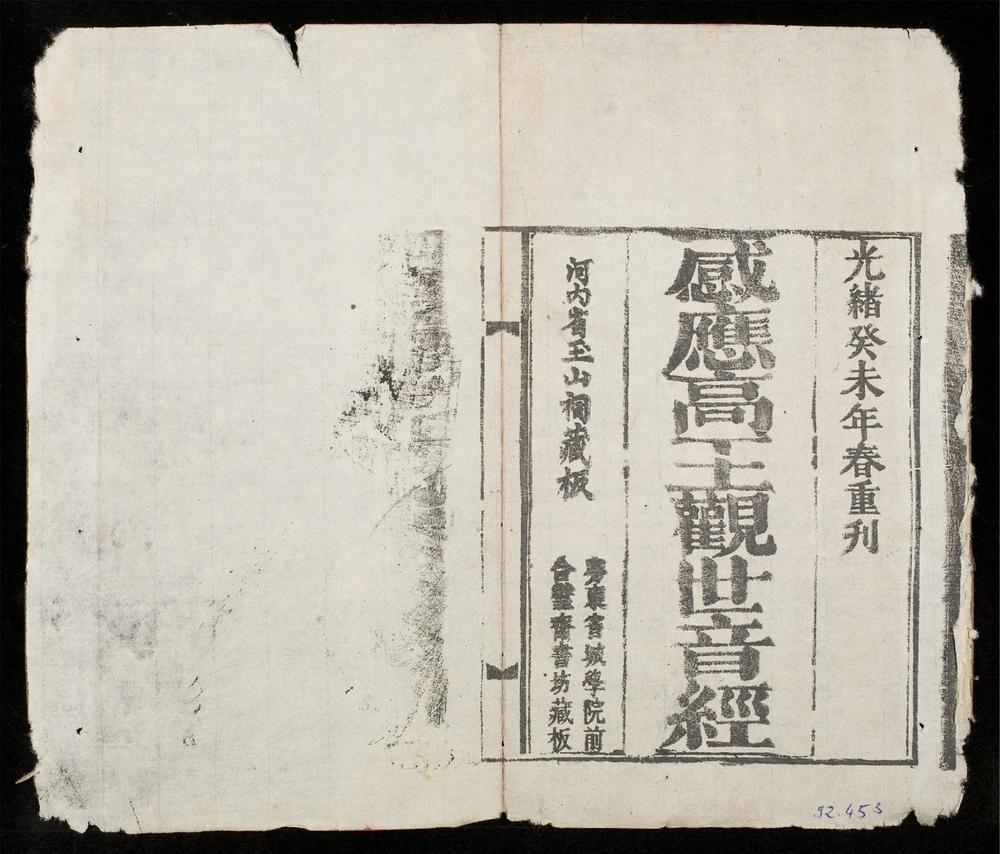 光緒癸未年春重刋
感應高王觀世音經
河內省玉山祠藏板
粵東省城學院前
合璧齋書坊藏板
92.453